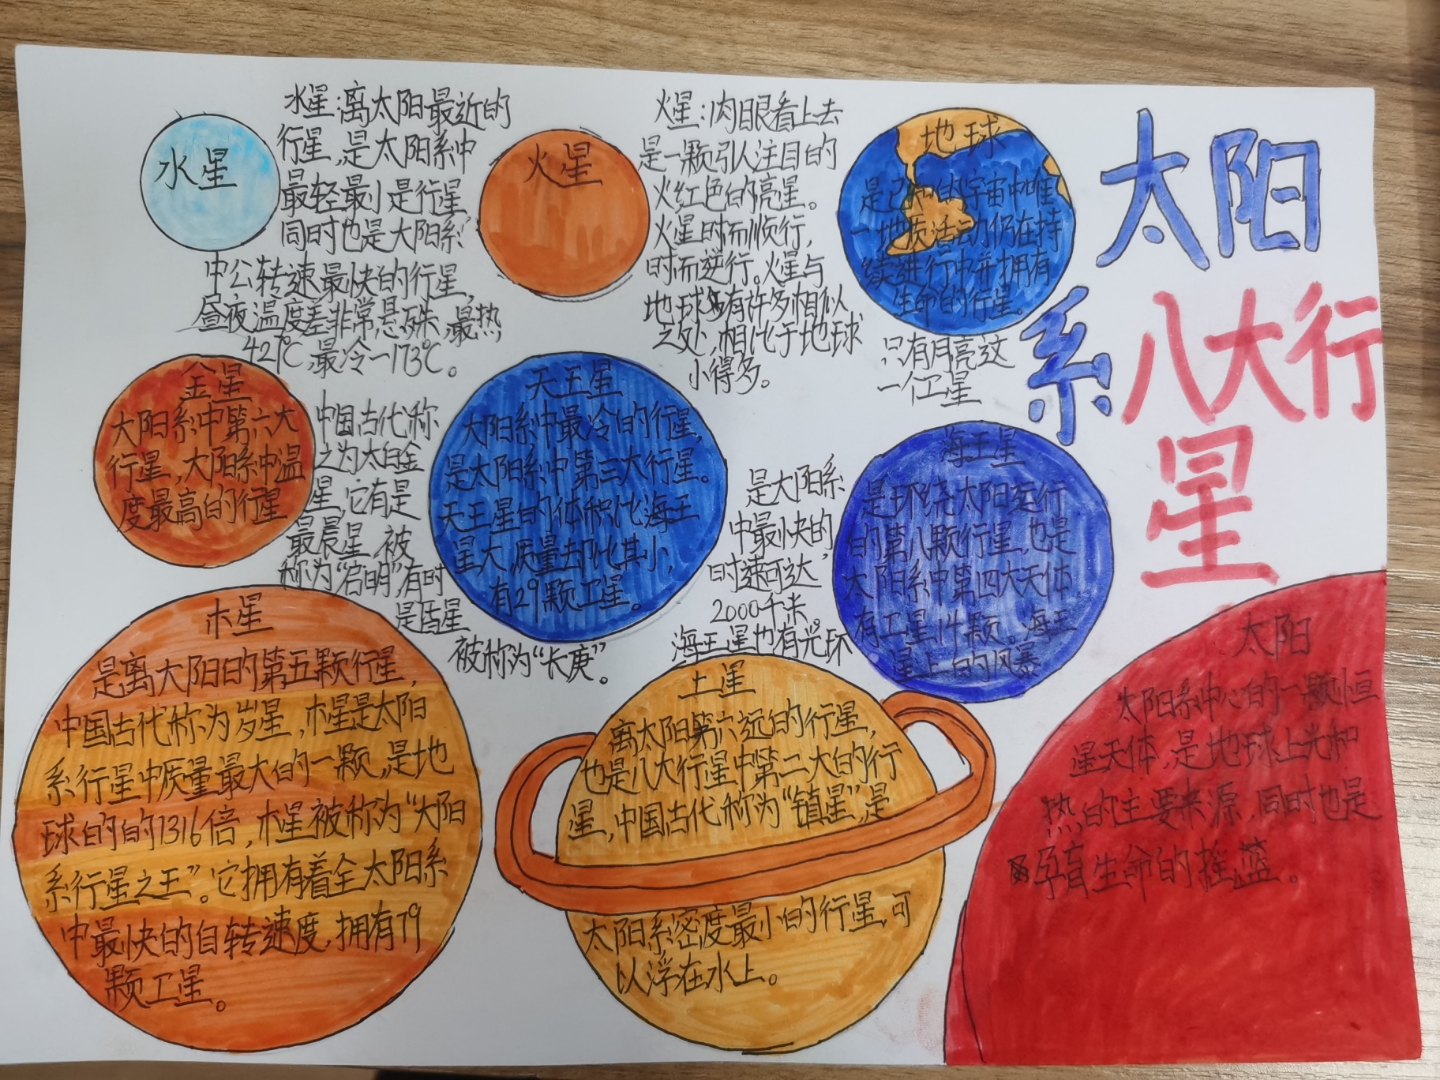 太阳
系
八大行
星
水星
水星:离太阳最近的
行星,是太阳系中
最轻最小是行星,
同时也是太阳系
中公转速最快的行星,
昼夜温度差非常悬殊,最热
427℃最冷-173℃。
火星
火星:肉眼看上去
是一颗引人注目的
火红色的亮星。
火星时而顺行,
时而逆行。火星与
地球有许多相似
之处,相比于地球
小得多。
地球
是已知的宇宙中唯
一地质活动仍在持
续进行中并拥有
生命的行星。
只有月亮这
一位卫星
金星
太阳系中第六大
行星,太阳系中温
度最高的行星
中国古代称
之为太白金
星,它有是
最晨星,被
称为“启明”,有时
是昏星
被称为“长庚”。
天王星
太阳系中最冷的行星,
是太阳系中第三大行星。
天王星的体积比海王
星大,质量却比其小,
有29颗卫星。
海王星
是环绕太阳运行
的第八颗行星,也是
太阳系中第四大天体
有卫星14颗。海王
星上的风暴
是太阳系
中最快的,
时速可达
2000千米。
海王星也有光环
木星
是离太阳的第五颗行星,
中国古代称为岁星,木星是太阳
系行星中质量最大的一颗,是地
球的的1316倍,木星被称为“太阳
系行星之王”。它拥有着全太阳系
中最快的自转速度,拥有79
颗卫星。
土星
离太阳第六远的行星,
也是八大行星中第二大的行
星,中国古代称为“镇星”,是
太阳系密度最小的行星,可
以浮在水上。
太阳
太阳系中心的一颗恒
星天体,是地球上光和
热的主要来源,同时也是
孕育生命的摇篮。